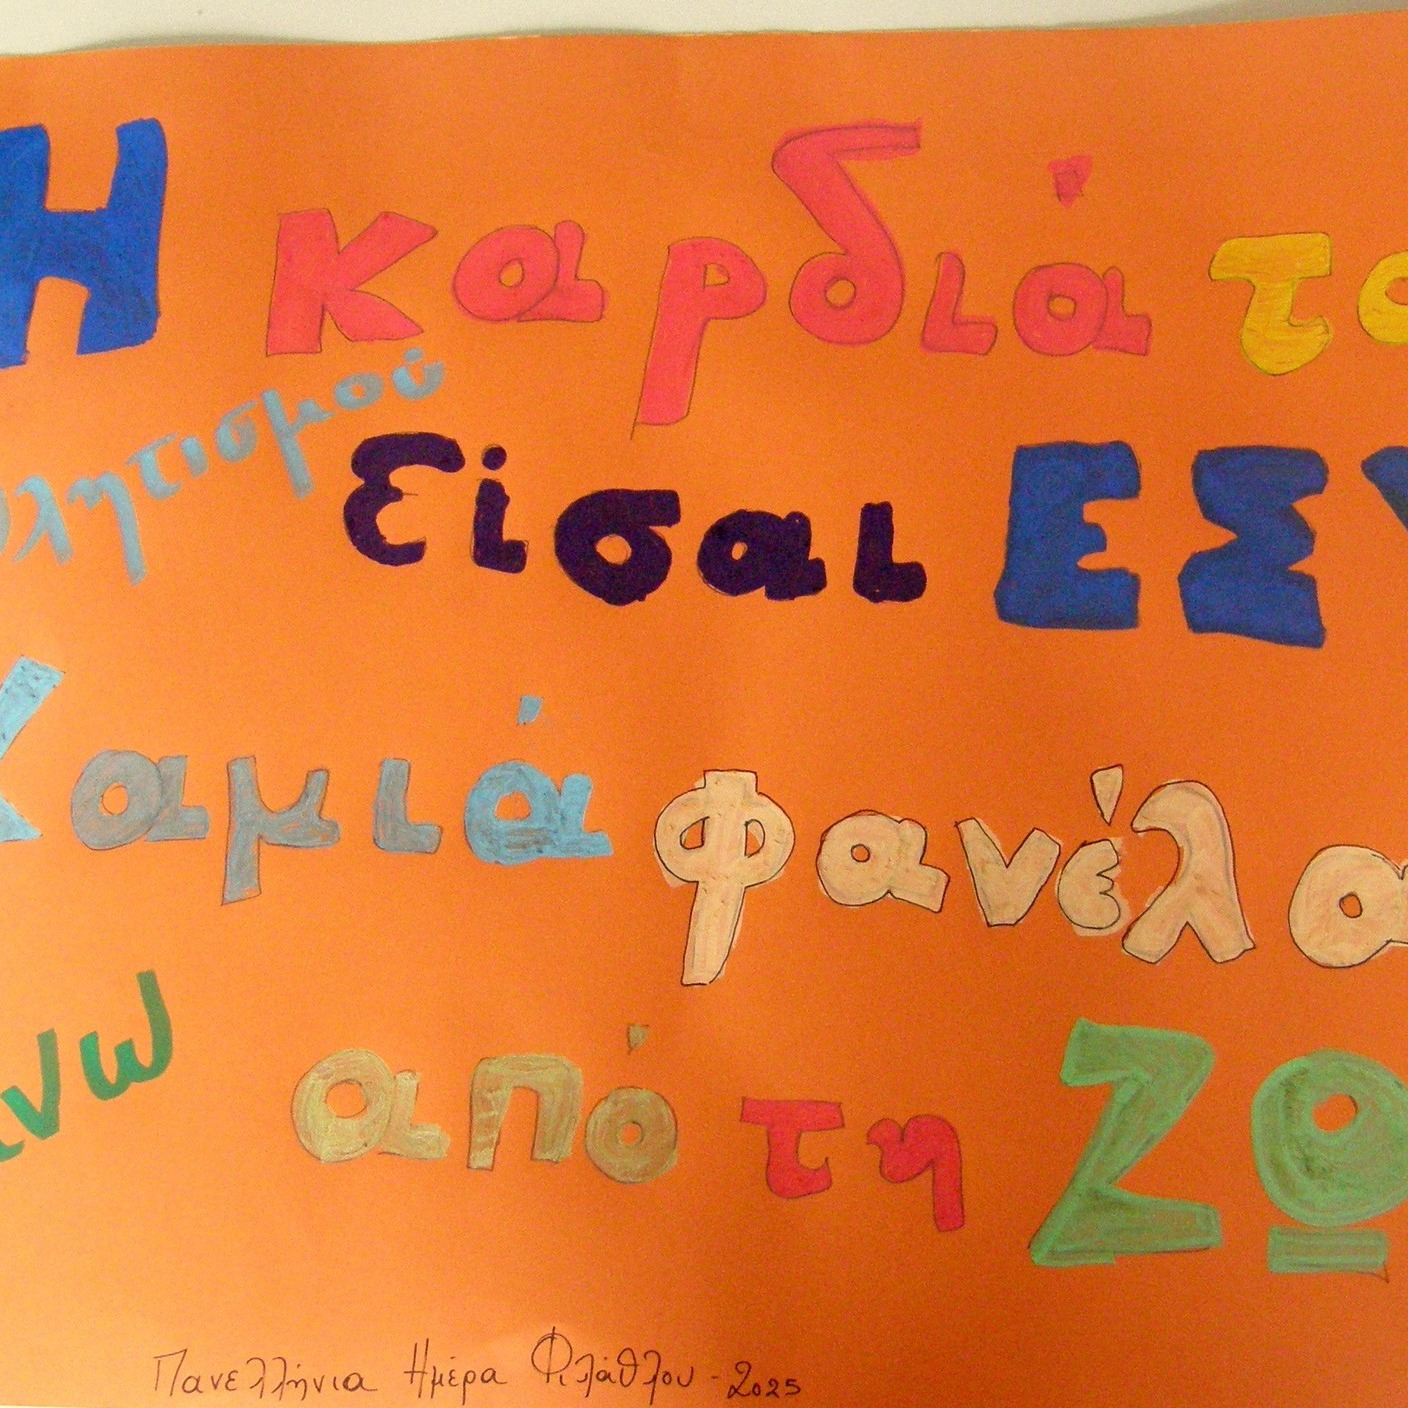 Η καρδιά το
θλητισμού
είσαι ΕΣΥ
Καμιά φανέλα
άνω από τη ΖΩ
Πανελλήνια Ημέρα Φιλάθλου - 2025